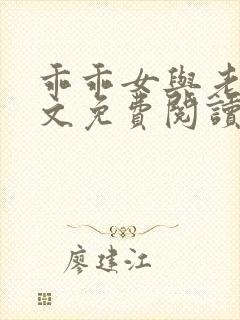 乖乖女與老
文免費閱讀
廖建江